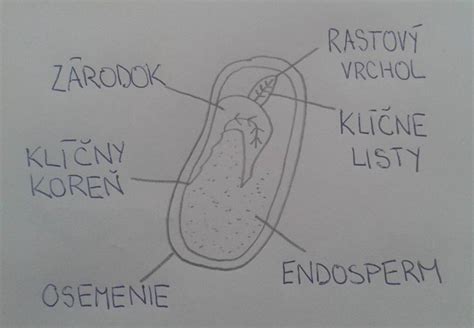 RASTOVÝ
VRCHOL
ZÁRODOK
KLÍČNE
LISTY
KLÍČNY
KOREŇ
ENDOSPERM
OSEMENIE